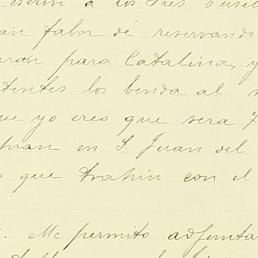 a los Tres
fabor dé reservando
para Catalina, y
tentes los benda al
que yo creo que sera
en S. Juan del
que Trahin con el
Me permito adjunta